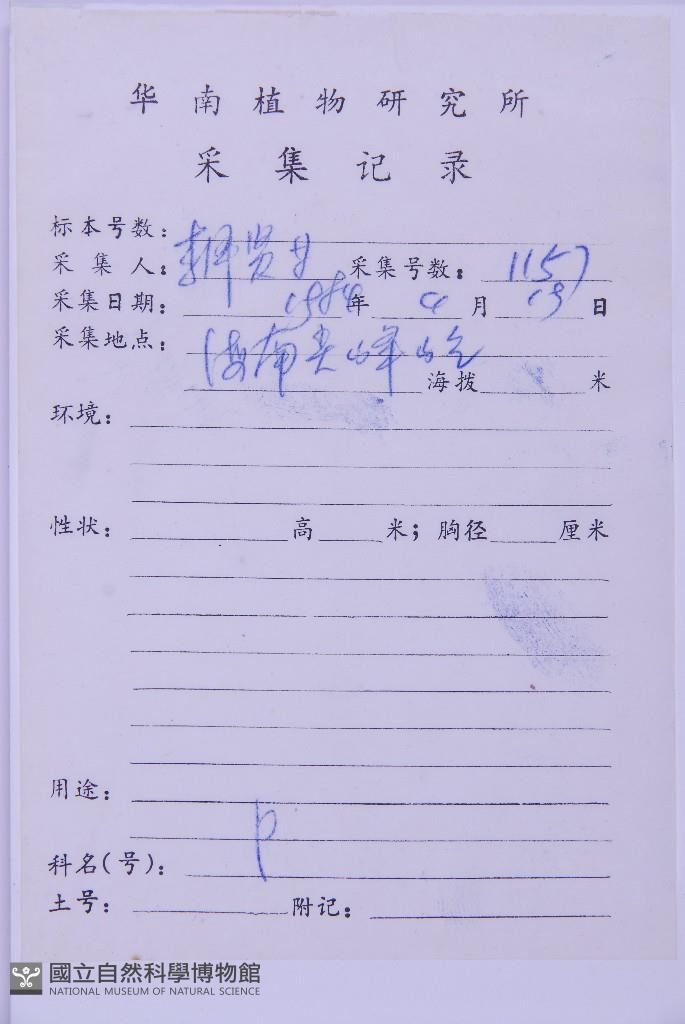 华南植物研究所
采集记录
标本号数：
采集人： 采集号数： 1157
采集日期： 1984年 4月 日
采集地点： 海南尖峰岭
海拨 米
环境：
性状： 高 米；胸径 厘米
用途：
科名(号)： P
土号： 附记：
國立自然科學博物館
NATIONAL MUSEUM OF NATURAL SCIENCE